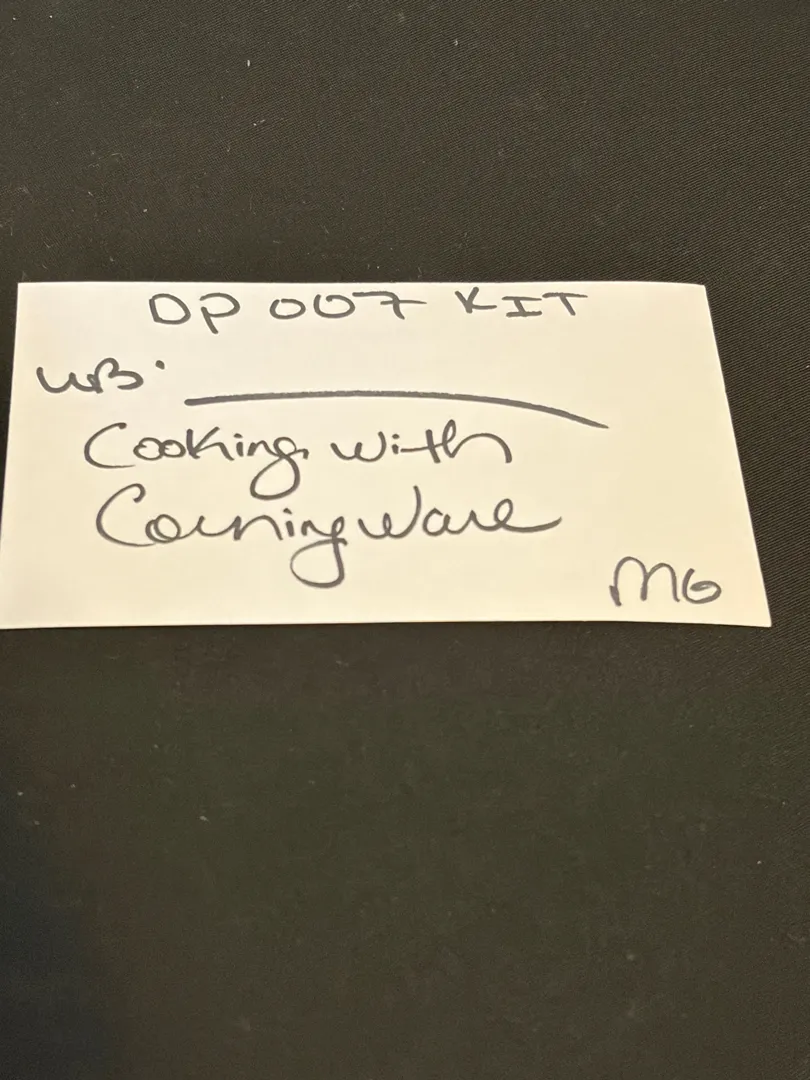 DP 007 KIT
WB.
Cooking with
CorningWare
MG